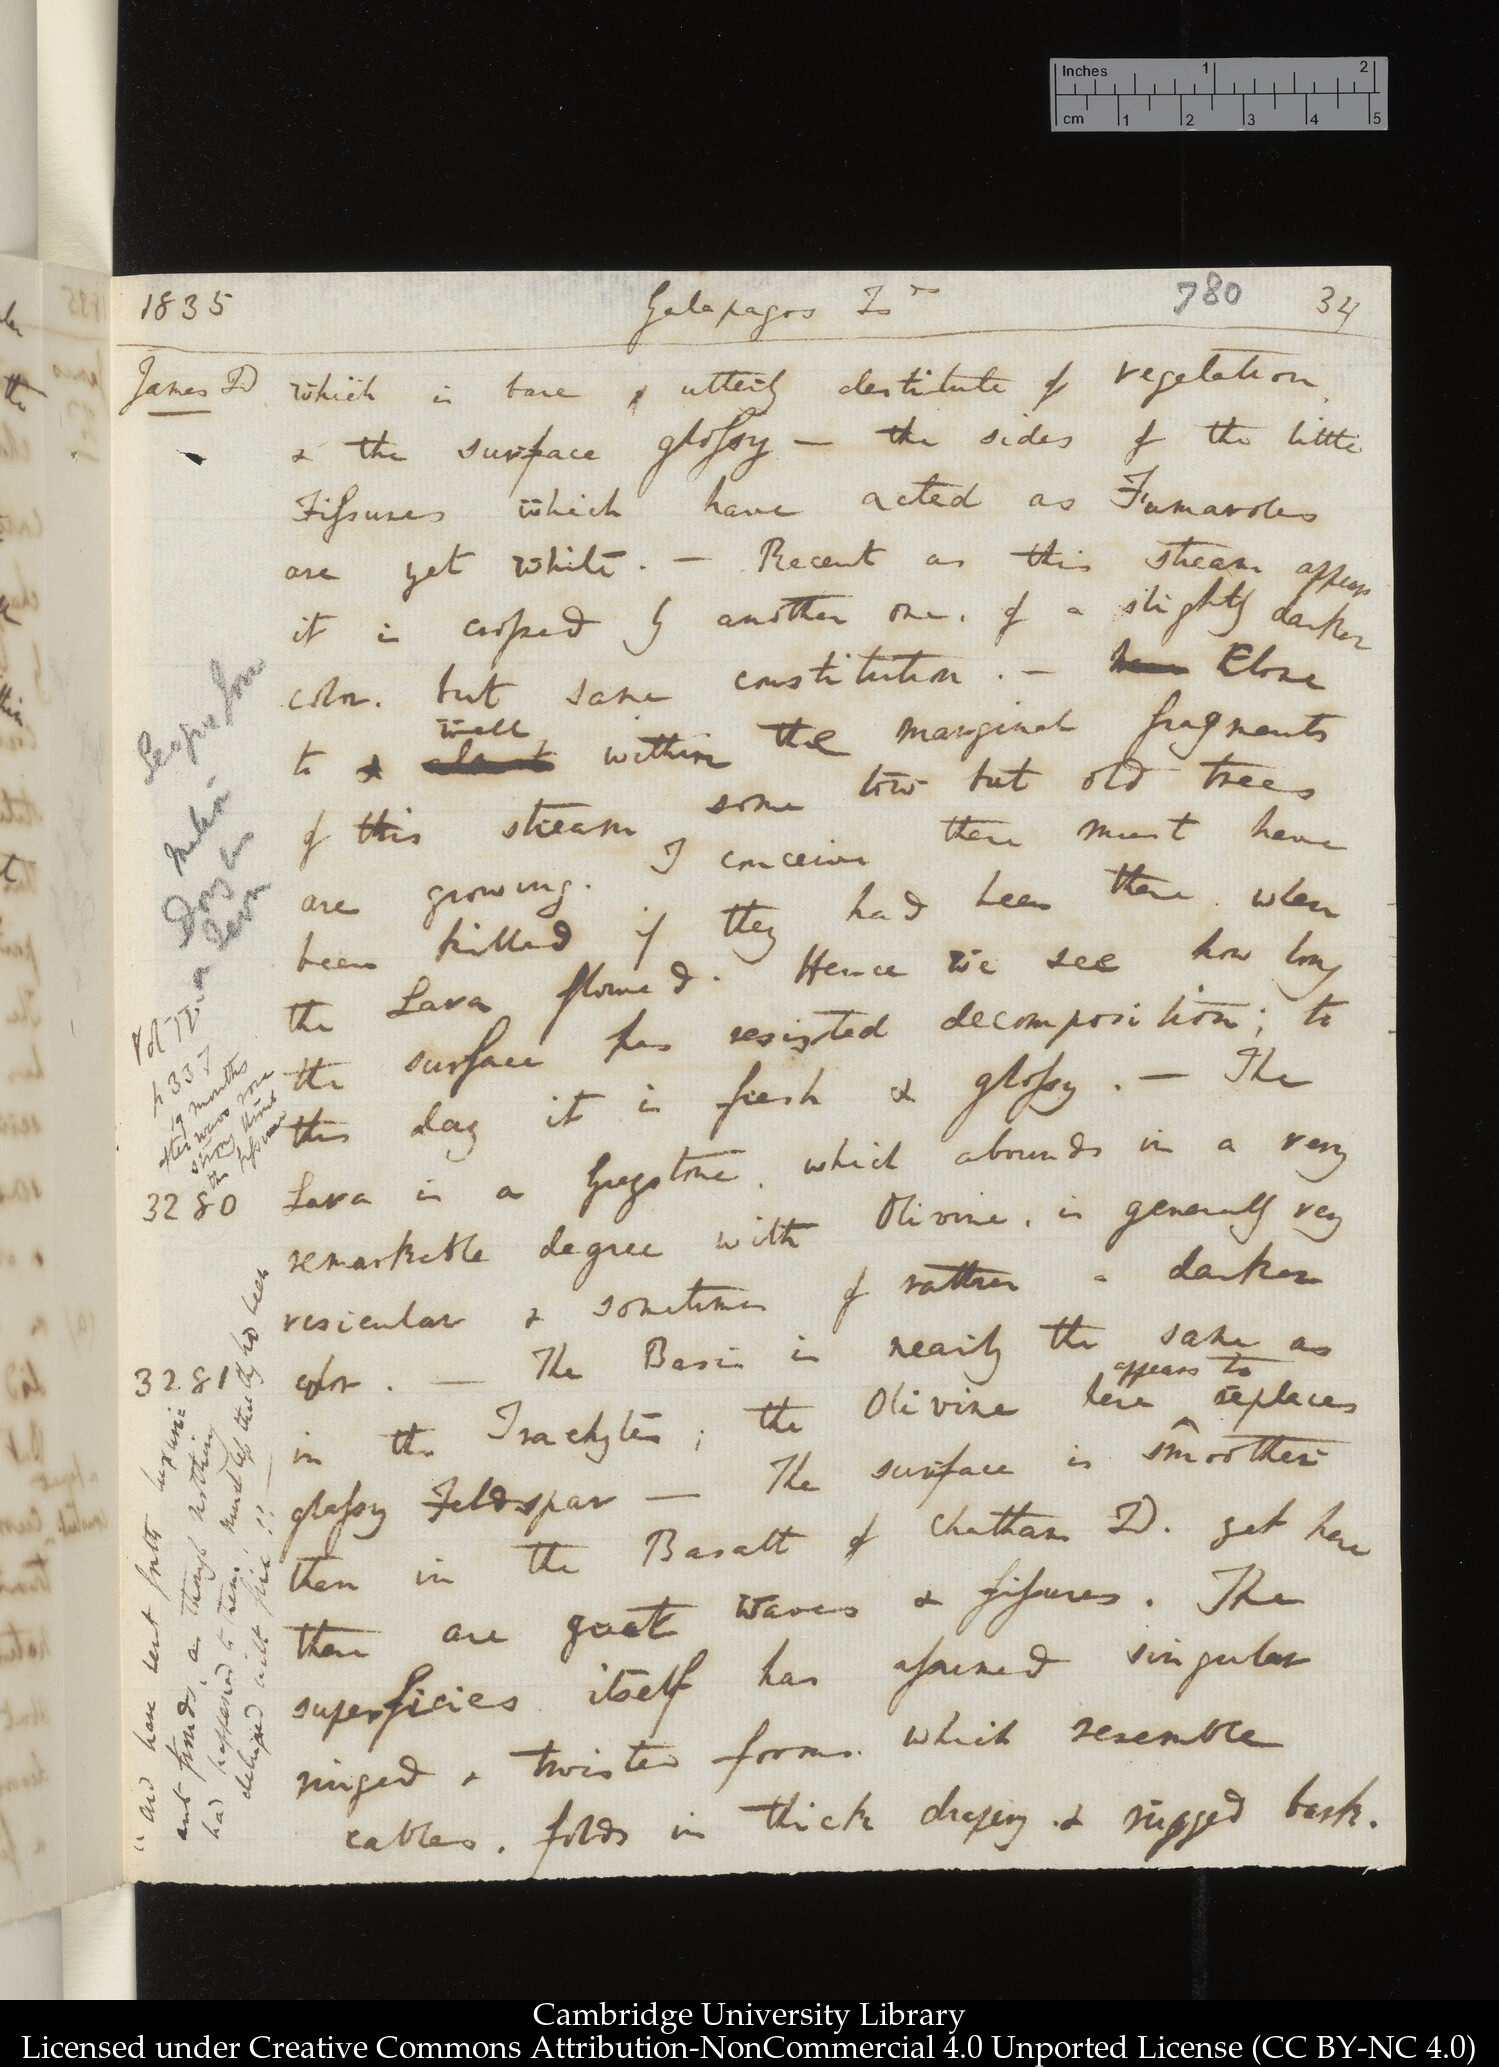 Inches 1 2
cm 1 2 3 4 5
1835 Galapagos Is 780 34
James Id which is bare & utterly destitute of vegetation,
& the surface glossy — the sides of the little
Fissures which have acted as Fumaroles
are yet white. — Recent as this stream appears
it is crossed by another one, of a slightly darker
color. but same constitution. — Close
to well within the marginal fragments
of this stream some low but old trees
are growing. I conceive there must have
been killed if they had been there when
the Lava flowed. Hence we see how long
the surface has resisted decomposition; to
this day it is fresh & glossy. — The
3280 Lava is a Greystone, which abounds in a very
remarkable degree with Olivine, is generally very
vesicular & sometimes of rather a darker
3281 color. — The Basis is nearly the same as
in the Trachytes; the Olivine here appears to replaces
glassy Feldspar — The surface is smoother
than in the Basalt of Chatham Id. yet here
there are great waves & fissures. The
superficies itself has assumed singular
ringed & twisted forms. which resemble
cables, folds in thick drapery & rugged bark.
p 337
months
afterwards
strong
the fissures
"and have sent forth luxuriant
and fronds, as though nothing
had happened to them, much less that they had been
deluged with fire!! —
Cambridge University Library
Licensed under Creative Commons Attribution-NonCommercial 4.0 Unported License (CC BY-NC 4.0)